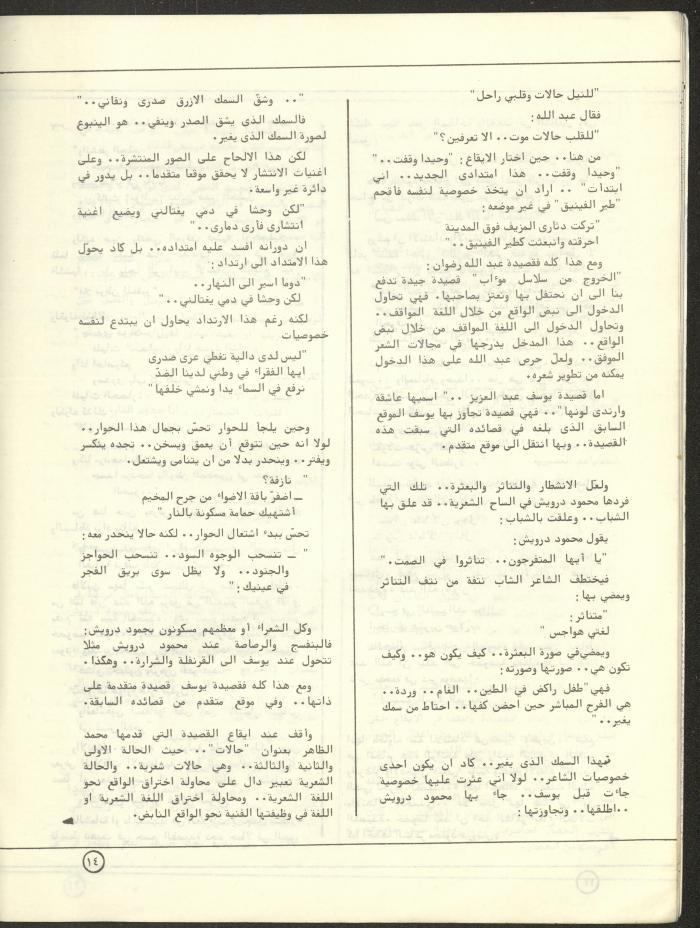 "للنيل حالات وقلبي راحل"
فقال عبد الله:
"للقلب حالات موت.. الا تعرفين؟"
من هنا.. حين اختار الايقاع: "وحيدا وقفت.."
"وحيدا وقفت.. هذا امتدادى الجديد.. اني
ابتدأت" .. اراد ان يتخذ خصوصية لنفسه فأقحم
"طير الفينيق" في غير موضعه:
"تركت دثارى المزيف فوق المدينة
احرقته وانبعثت كطير الفينيق.."
ومع هذا كله فقصيدة عبد الله رضوان:
"الخروج من سلاسل موءاب" قصيدة جيدة تدفع
بنا الى ان نحتفل بها ونعتز بصاحبها. فهي تحاول
الدخول الى نبض الواقع من خلال اللغة المواقف..
وتحاول الدخول الى اللغة المواقف من خلال نبض
الواقع.. هذا المدخل يدرجها في مجالات الشعر
الموفق.. ولعلّ حرص عبد الله على هذا الدخول
يمكنه من تطوير شعره.
اما قصيدة يوسف عبد العزيز .." اسميها عاشقة
وارتدى لونها".. فهي قصيدة تجاوز بها يوسف الموقع
السابق الذى بلغه في قصائده التي سبقت هذه
القصيدة.. وبها انتقل الى موقع متقدم.
ولعلّ الانشطار والتناثر والبعثرة.. تلك التي
فردها محمود درويش في الساح الشعرية.. قد علق بها
الشباب.. وعلقت بالشباب:
يقول محمود درويش:
"يا أيها المتفرجون.. تناثروا في الصمت."
فيختطف الشاعر الشاب نتفة من نتف التناثر
ويمضي بها:
"متناثر:
لغتي هواجس "
ويمضي في صورة البعثرة.. كيف يكون هو.. وكيف
تكون هي.. صورتها وصورته:
فهي"طفل راكض في الطين.. الغام.. وردة..
هي الفرح المباشر حين احضن كفها.. احتاط من سمك
يغير.."
فهذا السمك الذى يغير.. كاد ان يكون احدى
خصوصيات الشاعر.. لولا اني عثرت عليها خصوصية
جاءت قبل يوسف.. جاء بها محمود درويش
..اطلقها.. وتجاوزتها:
".. وشقّ السمك الازرق صدرى ونفاني.."
فالسمك الذى يشق الصدر وينفي.. هو الينبوع
لصورة السمك الذى يغير.
لكن هذا الالحاح على الصور المنتشرة.. وعلى
اغنيات الانتشار لا يحقق موقعا متقدما.. بل يدور في
دائرة غير واسعة.
"لكن وحشا في دمي يغتالني ويضيع اغنية
انتشارى فأرى دمارى.."
ان دورانه افسد عليه امتداده.. بل كاد يحوّل
هذا الامتداد الى ارتداد:
"دوما اسير الى النهار..
لكن وحشا في دمي يغتالني.."
لكنه رغم هذا الارتداد يحاول ان يبتدع لنفسه
خصوصيات
"ليس لدى دالية تغطي عرى صدرى
ايها الفقراء في وطني لدينا الضدّ
نرفع في السماء يدا ونمشي خلفها"
وحين يلجأ للحوار تحسّ بجمال هذا الحوار..
لولا انه حين تتوقع أن يعمق ويسخن.. تجده ينكسر
ويفتر.. وينحدر بدلا من ان يتنامى ويشتعل.
" نازفة؟
ــ اضفرّ باقة الاضواء من جرح المخيم
أشتهيك حمامة مسكونة بالنار "
تحسّ ببدء اشتعال الحوار.. لكنه حالا ينحدر معه:
" ــ تنسحب الوجوه السود.. تنسحب الحواجز
والجنود.. ولا يظل سوى بريق الفجر
في عينيك:"
وكل الشعراء أو معظمهم مسكونون بمحمود درويش:
فالبنفسج والرصاصة عند محمود درويش مثلا
تتحول عند يوسف الى القرنفلة والشرارة.. وهكذا.
ومع هذا كله فقصيدة يوسف قصيدة متقدمة على
ذاتها.. وفي موقع متقدم من قصائده السابقة.
وأقف عند ايقاع القصيدة التي قدمها محمد
الظاهر بعنوان "حالات".. حيث الحالة الاولى
والثانية والثالثة.. وهي حالات شعرية.. والحالة
الشعرية تعبير دال على محاولة اختراق الواقع نحو
اللغة الشعرية.. ومحاولة اختراق اللغة الشعرية او
اللغة في وظيفتها الفنية نحو الواقع النابض.
١٤